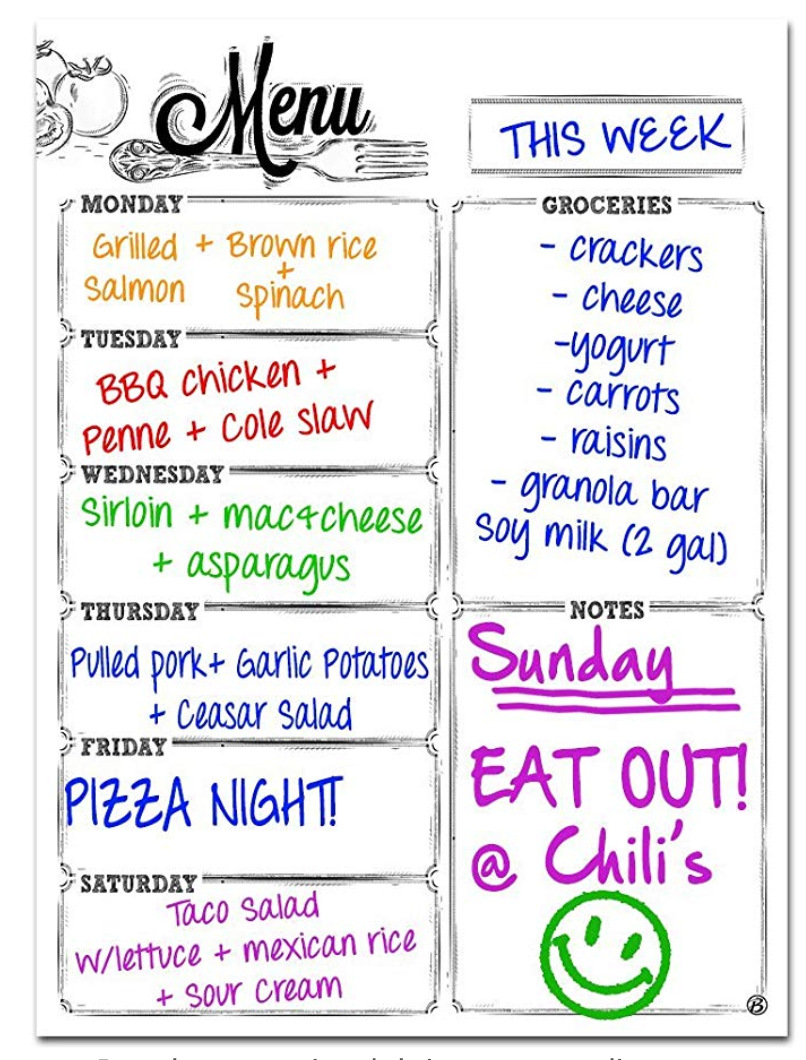 Menu
THIS WEEK
MONDAY
Grilled + Brown rice
+
Salmon Spinach
TUESDAY
BBQ chicken +
Penne + Cole slaw
WEDNESDAY
Sirloin + mac+cheese
+ asparagus
THURSDAY
Pulled pork+ Garlic Potatoes
+ Ceasar Salad
FRIDAY
PIZZA NIGHT!
SATURDAY
Taco Salad
w/lettuce + mexican rice
+ Sour Cream
GROCERIES
- crackers
- cheese
-yogurt
- carrots
- raisins
- granola bar
Soy milk (2 gal)
NOTES
Sunday
EAT OUT!
@ Chili's
B